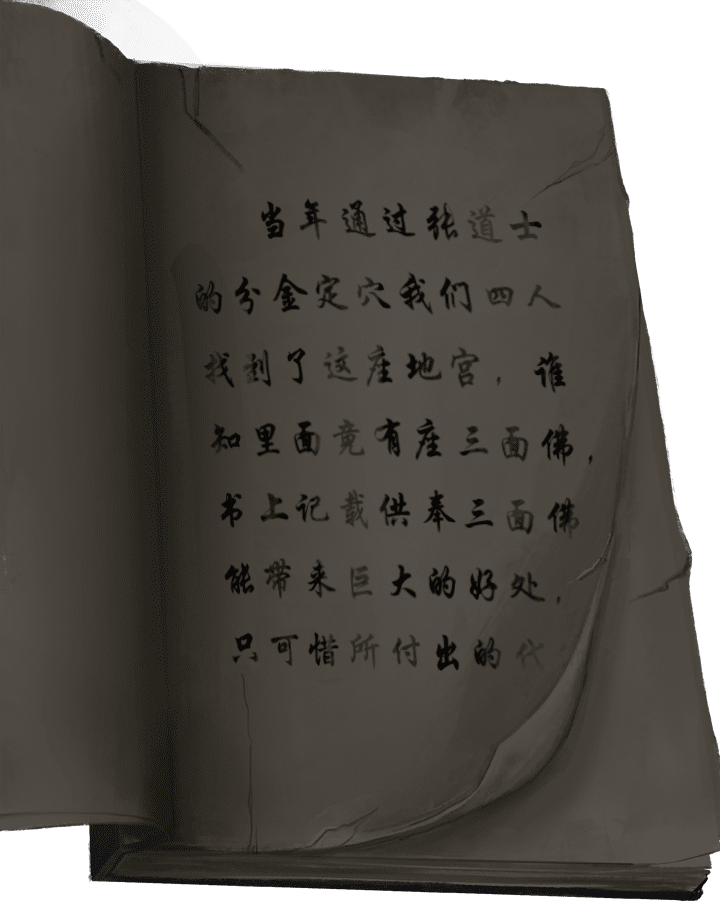 当年通过张道士
的分金定穴我们四人
找到了这座地宫，谁
知里面竟有座三面佛，
书上记载供奉三面佛
能带来巨大的好处，
只可惜所付出的代